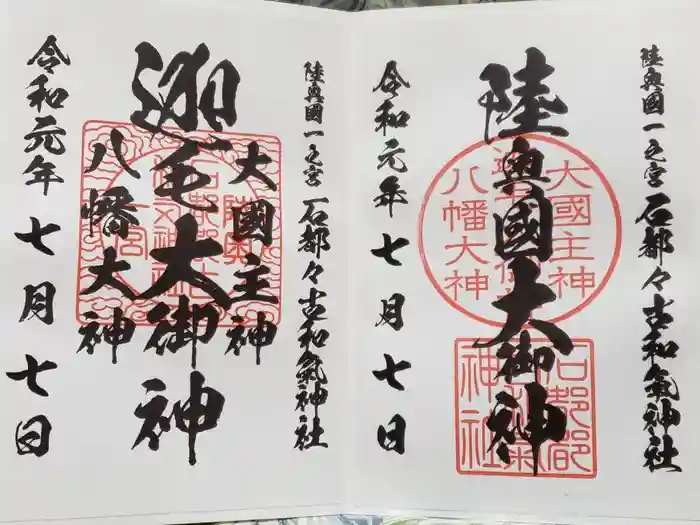 陸奥國一之宮 石都々古和氣神社
陸奥國大御神
大國主神
八幡大神
石都都
神社
令和元年 七月七日
陸奥國一之宮 石都々古和氣神社
大國主神
大御神
八幡大神
令和元年 七月七日